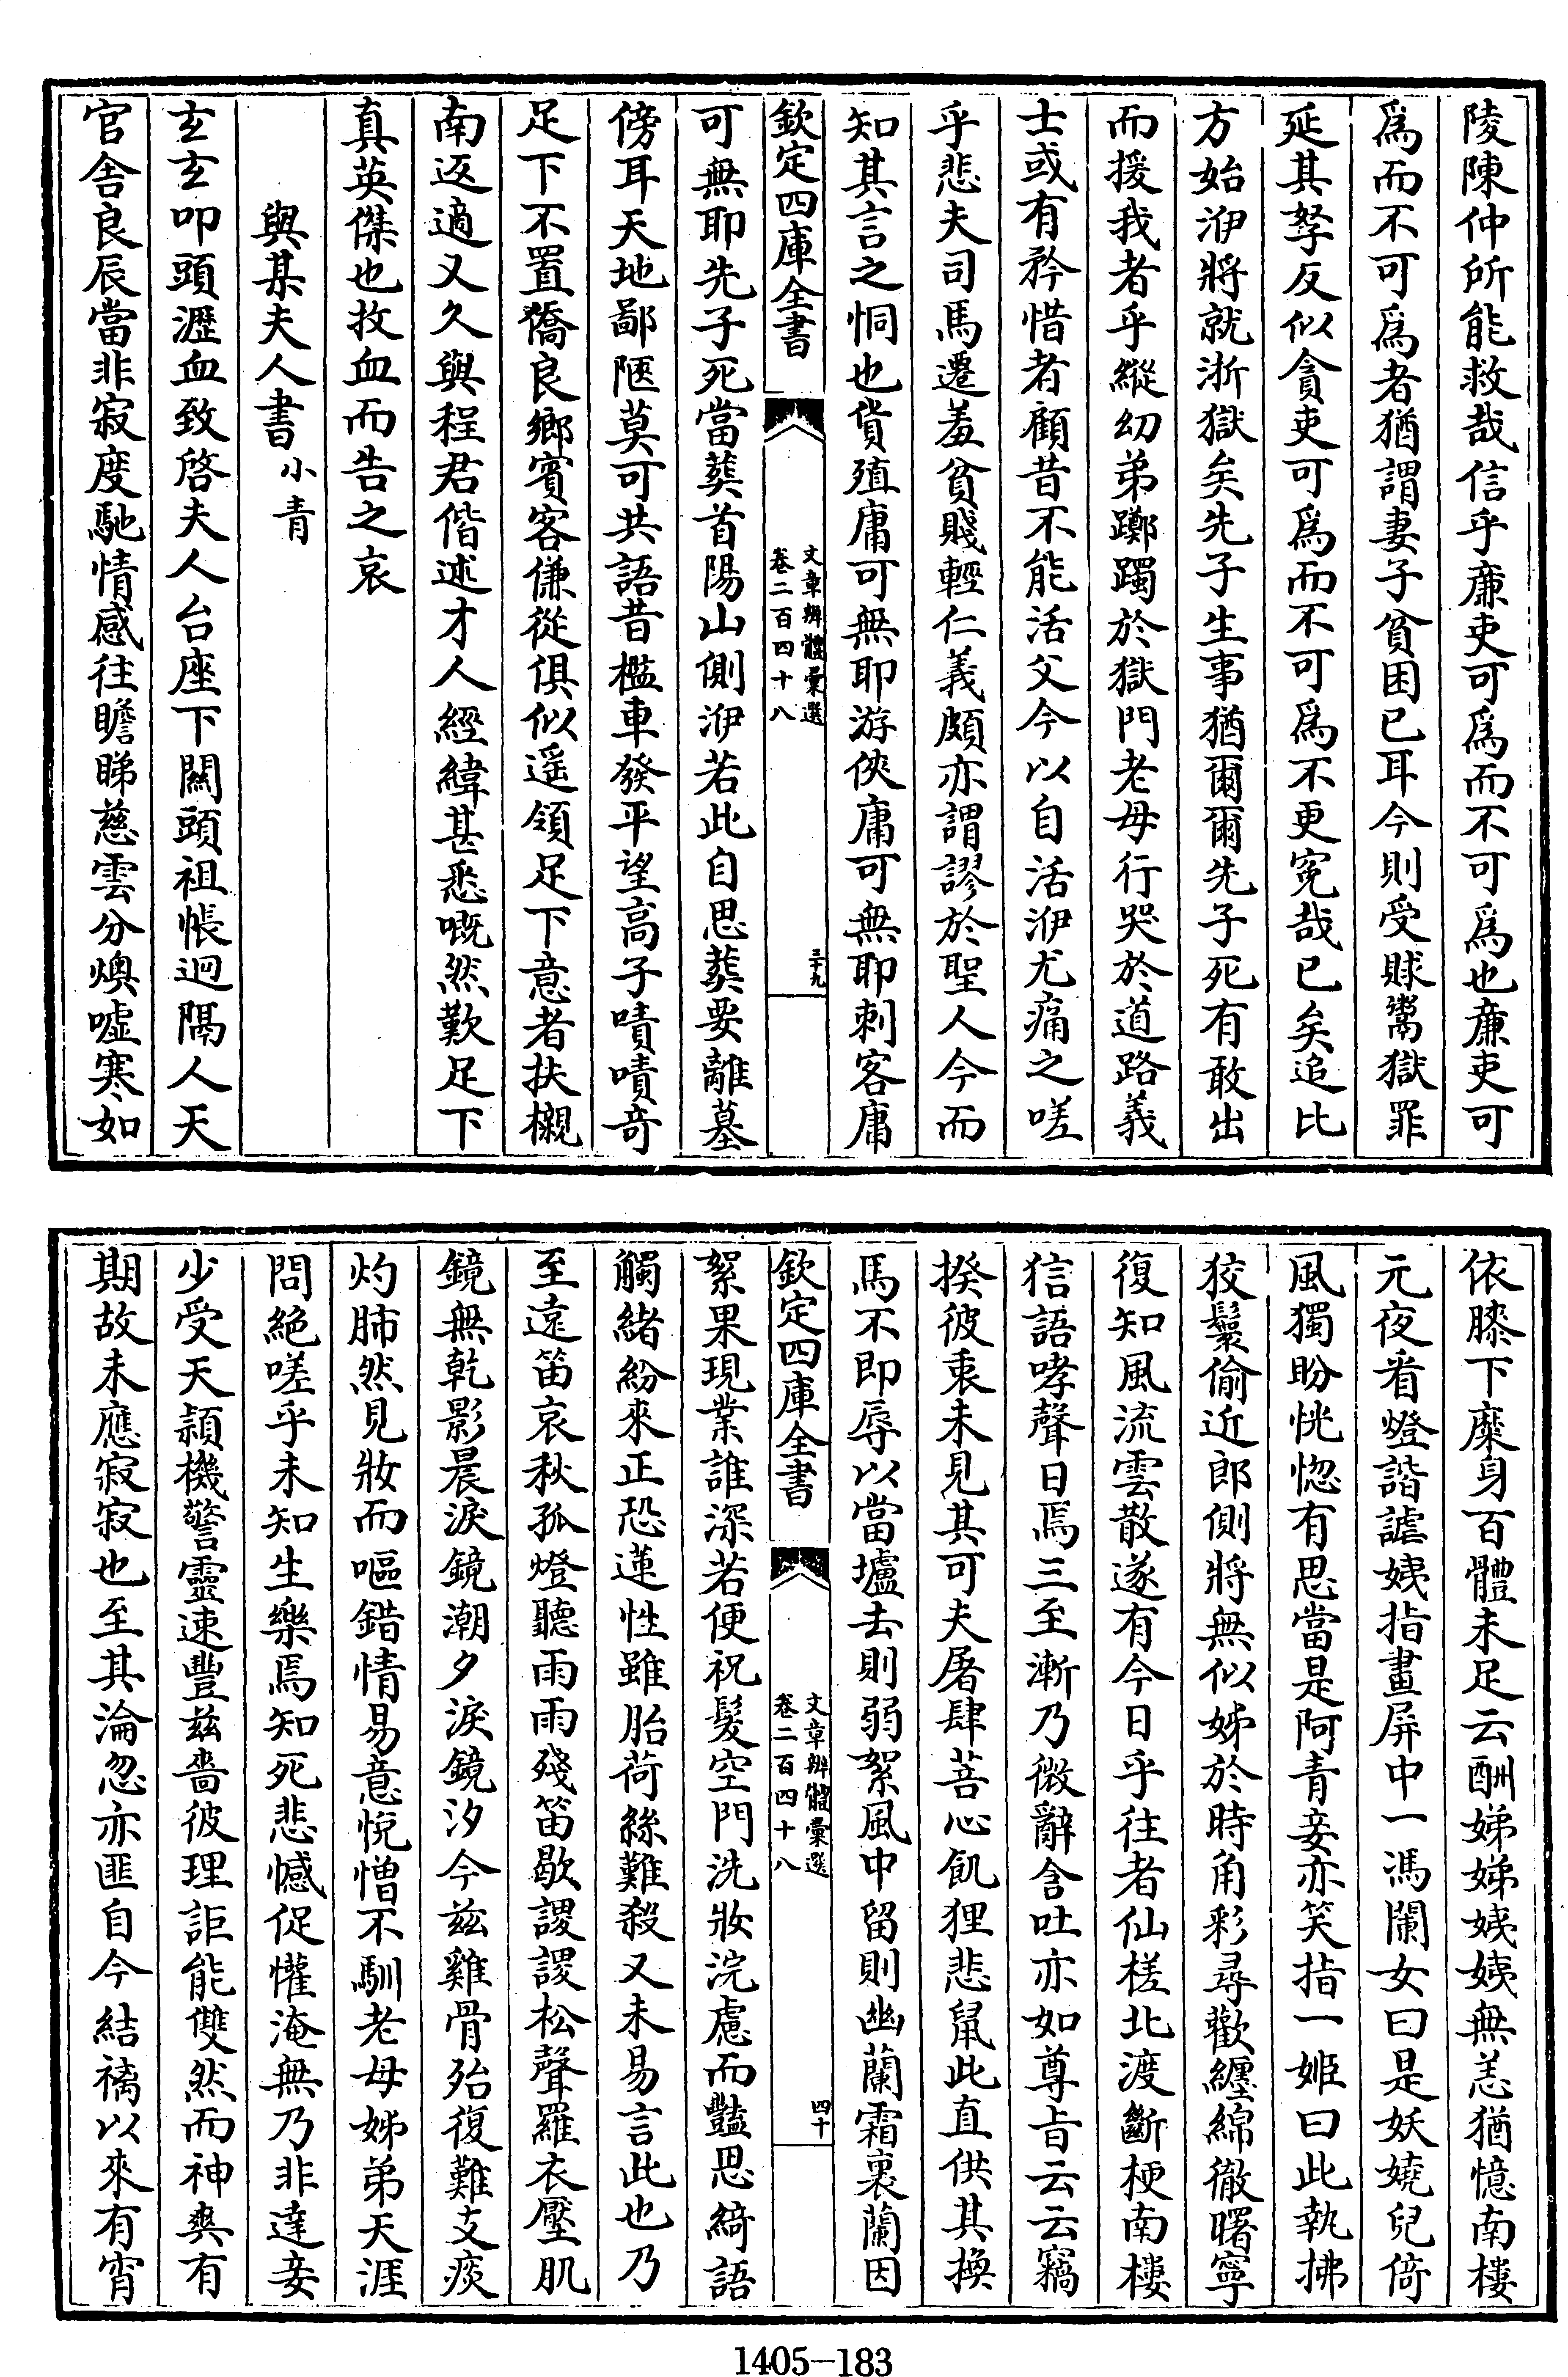 陵陳仲所能救哉信乎廉吏可爲而不可爲也廉吏可
爲而不可爲者猶謂妻子貧困已耳今則受賕鬻獄罪
延其孥反似貪吏可爲而不可爲不更寃哉已矣追比
方始洢將就浙獄矣先子生事猶爾爾先子死有敢出
而援我者乎縱幼弟躑躅於獄門老母行哭於道路義
士或有矜惜者顧昔不能活父今以自活洢尤痛之嗟
乎悲夫司馬遷羞貧賤輕仁義頗亦謂謬於聖人今而
知其言之恫也貨殖庸可無耶游俠庸可無耶刺客庸
欽定四庫全書
文章辨體彙選
卷二百四十八
三十九
可無耶先子死當葬首陽山側洢若此自思葬要離墓
傍耳天地鄙陋莫可共語昔檻車發平望高子嘖嘖奇
足下不置僑良鄉賓客傔從俱似遥領足下意者扶櫬
南返適又久與程君偕述才人經緯甚悉嘅然歎足下
真英傑也抆血而告之哀
與某夫人書小青
玄玄叩頭瀝血致啓夫人台座下關頭祖帳迥隔人天
官舍良辰當非寂度馳情感往瞻睇慈雲分燠噓寒如
依膝下糜身百體未足云酬娣娣姨姨無恙猶憶南樓
元夜看燈諧謔姨指畫屏中一馮闌女曰是妖嬈兒倚
風獨盼恍惚有思當是阿青妾亦笑指一姬曰此執拂
狡鬟偷近郎側將無似姊於時角彩尋歡纏綿徹曙寧
復知風流雲散遂有今日乎往者仙槎北渡斷梗南樓
狺語哮聲日焉三至漸乃微辭含吐亦如尊㫖云云竊
揆彼衷未見其可夫屠肆菩心飢狸悲鼠此直供其換
馬不即辱以當壚去則弱絮風中留則幽蘭霜裏蘭因
欽定四庫全書
文章辨體彙選
卷二百四十八
四十
絮果現業誰深若便祝髮空門洗妝浣慮而豔思綺語
觸緒紛來正恐蓮性雖胎荷絲難殺又未易言此也乃
至遠笛哀秋孤燈聽雨雨殘笛歇謖謖松聲羅衣壓肌
鏡無乾影晨淚鏡潮夕淚鏡汐今兹雞骨殆復難支痰
灼肺然見妝而嘔錯情易意悅憎不馴老母姊弟天涯
問絶嗟乎未知生樂焉知死悲憾促懽淹無乃非達妾
少受天穎機警靈速豐兹嗇彼理詎能雙然而神爽有
期故未應寂寂也至其淪忽亦匪自今結褵以來有宵
1405—183